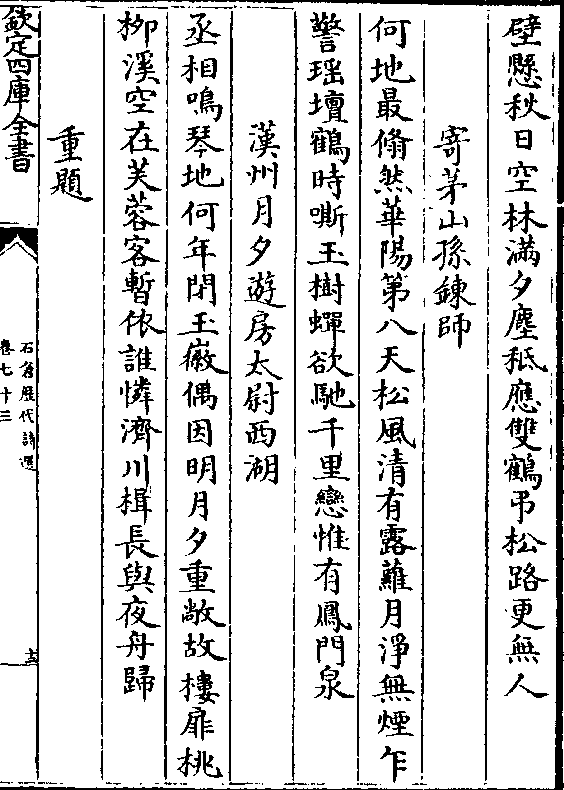 壁懸秋日空林滿夕塵秪應雙鶴弔松路更無人
寄茅山孫鍊師
何地最翛然華陽第八天松風清有露蘿月淨無煙乍
警瑶壇鶴時嘶玉樹蟬欲馳千里戀惟有鳳門泉
漢州月夕遊房太尉西湖
丞相鳴琴地何年閉玉徽偶因明月夕重敞故樓扉桃
柳溪空在芙蓉客暫依誰憐濟川楫長與夜舟歸
重題
欽定四庫全書
石倉歷代詩選
卷七十三
十三